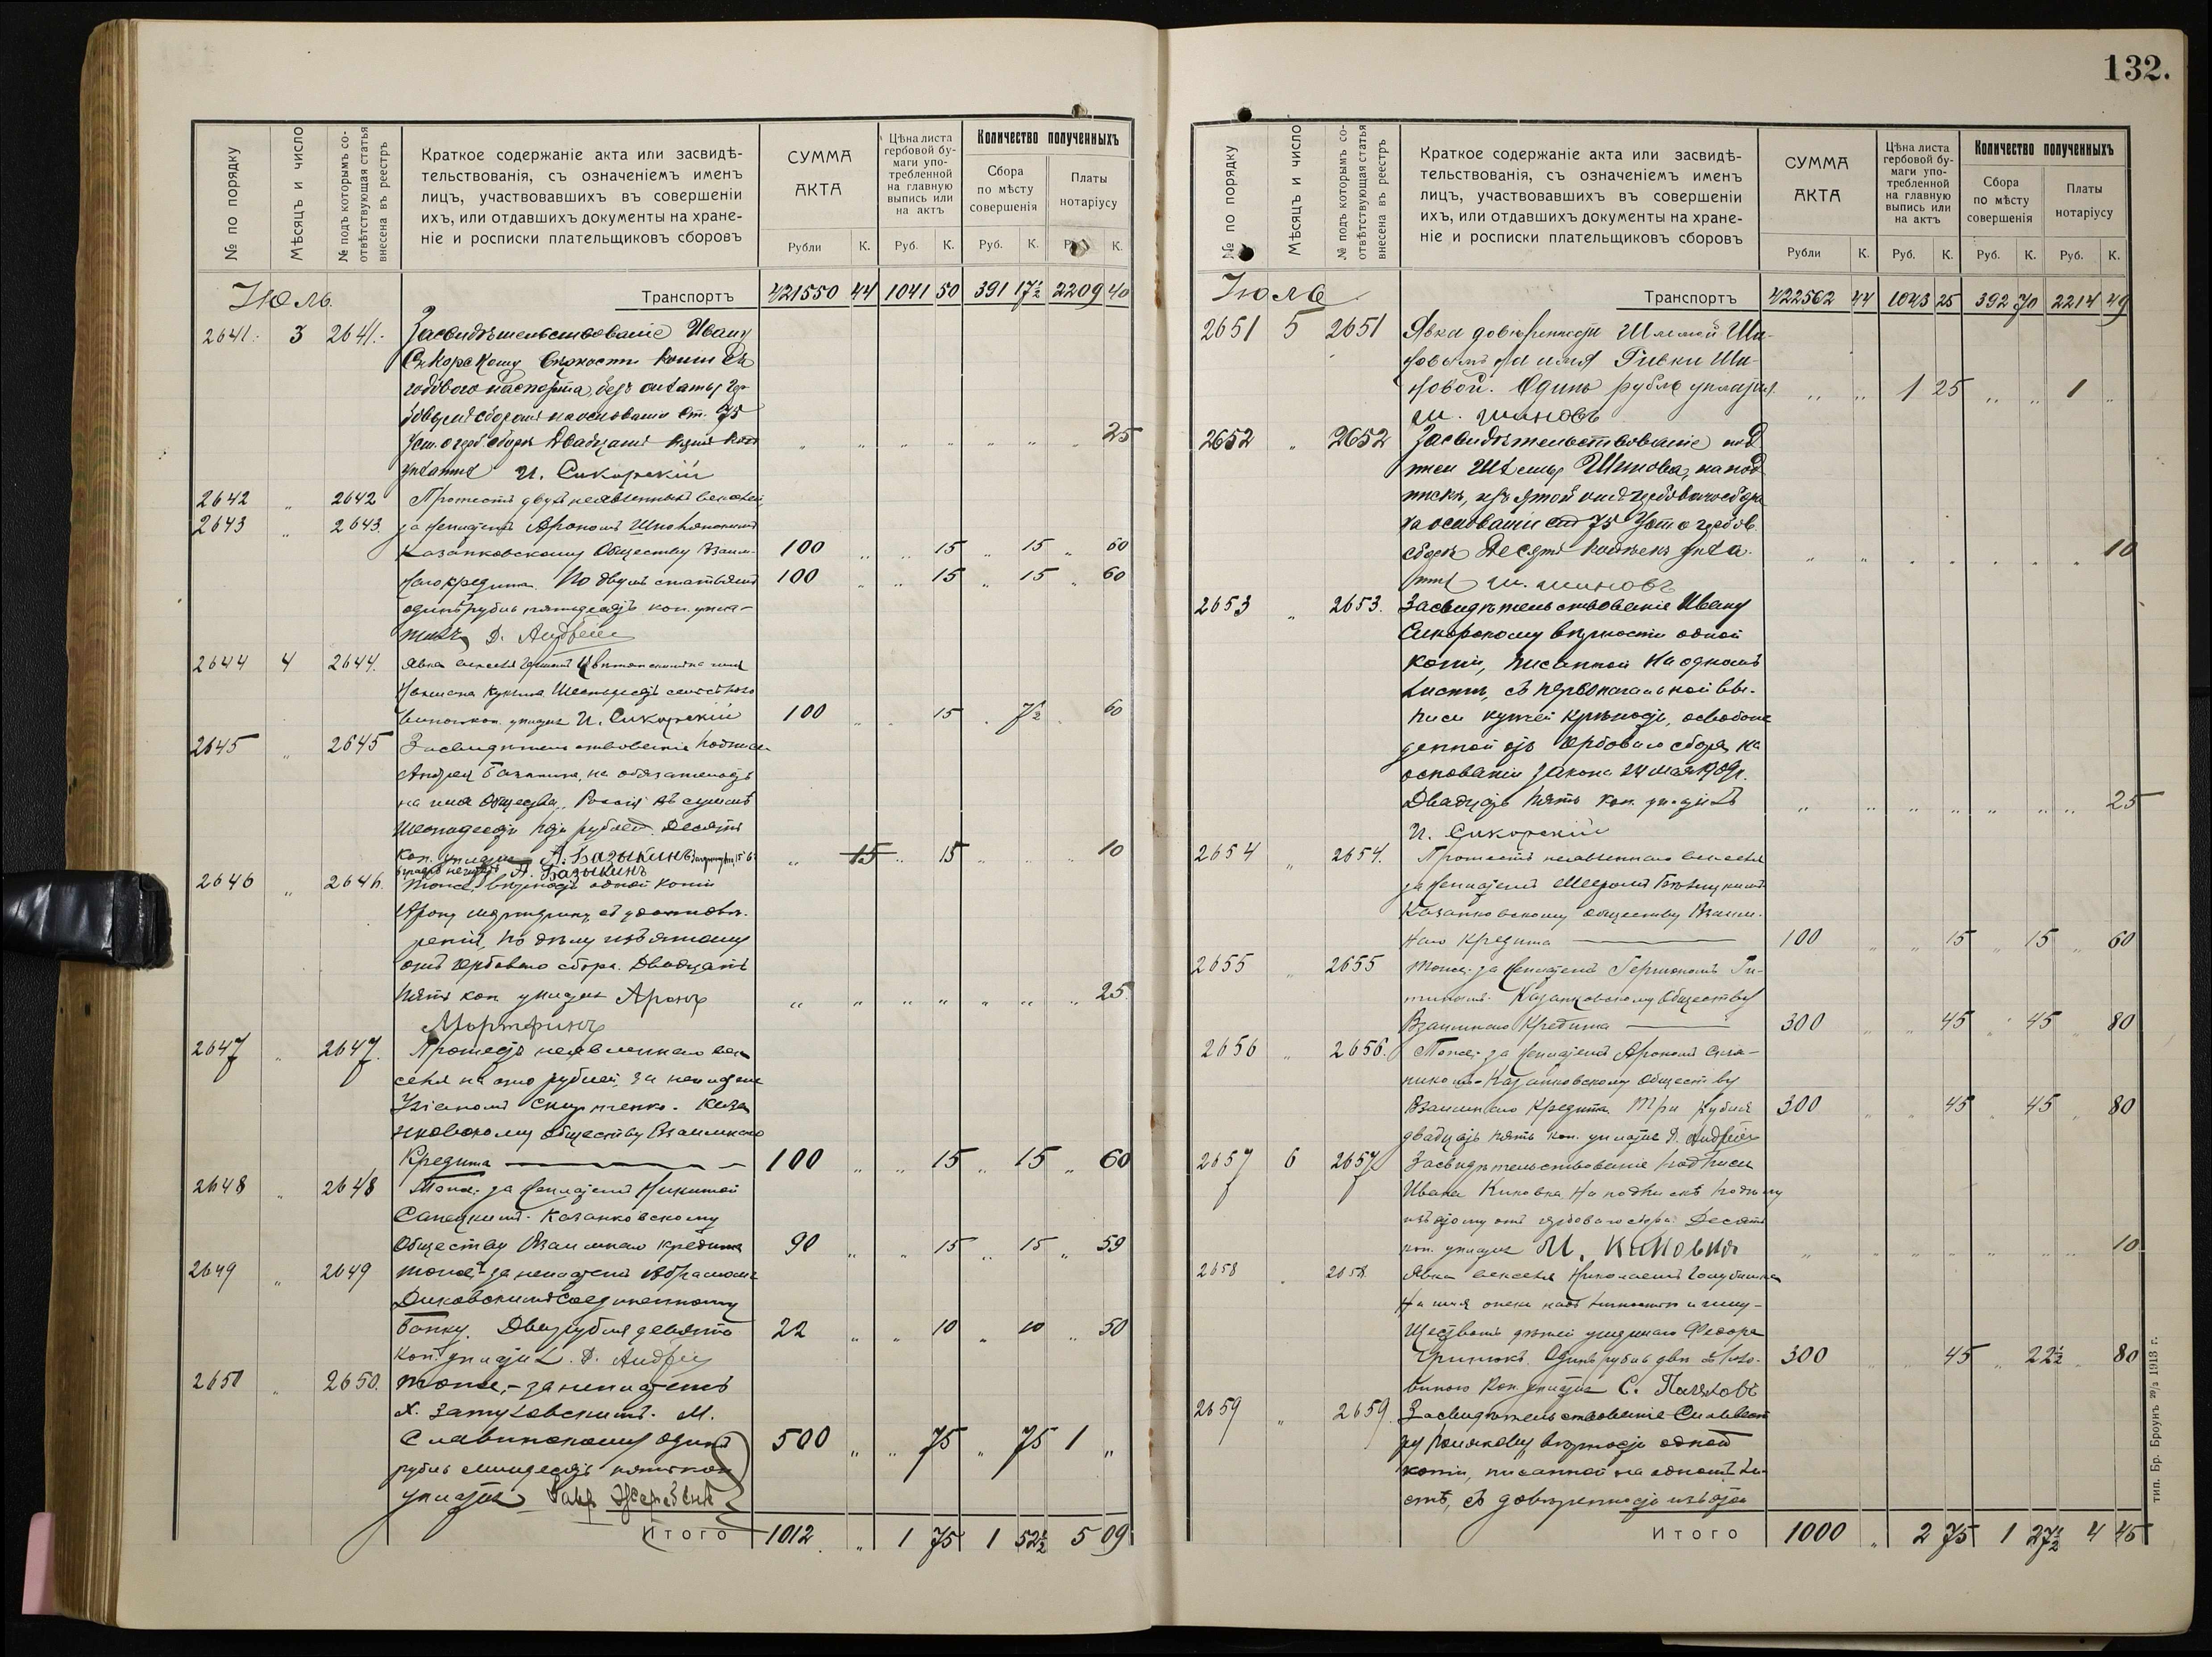 132.
№ по порядку
Мѣсяцъ и число
№ подъ которымъ со-
отвѣтствующая статья
внесена въ реестръ
Краткое содержаніе акта или засвидѣ-
тельствованія, съ означеніемъ именъ
лицъ, участвовавшихъ въ совершеніи
ихъ, или отдавшихъ документы на хране-
ніе и росписки плательщиковъ сборовъ
СУММА
АКТА
Рубли К.
Цѣна листа
гербовой бу-
маги упо-
требленной
на главную
выпись или
на актъ
Руб. К.
Количество полученныхъ
Сбора
по мѣсту
совершенія
Руб. К.
Платы
нотаріусу
К.
Июль. Транспортъ 421550 44 1041 50 391 17½ 2209 40
2641. 3 2641. Засвидѣтельствованіе Ивану
Сикорскому вѣрности копіи съ
годоваго паспорта, безъ оплаты гер
боваго сборомъ на основаніи ст. 75
Уст. о герб. сборѣ Двадцать пять коп " " " " " " " 25
уплатилъ И. Сикорскій
2642 " 2642 Протестъ двухъ неявленныхъ векселей
2643 " 2643 за неплатежъ Арономъ
Казанковскому Обществу Взаим- 100 " " 15 " 15 " 60
наго кредита. По двумъ статьямъ 100 " " 15 " 15 " 60
одинъ рубль пятьдесятъ коп. упла-
тилъ Д. Андрѣе
2644 4 2644. Явка векселя на имя
Шестьдесятъ семь съ поло
виною коп. уплат. И. Сикорскій 100 " " 15 " 7½ " 60
2645 " 2645 Засвидѣтельствованіе подписи
Андрея Базыкина, на обязательствѣ
на имя Общества „Россія" въ суммѣ
рублей. Десять
коп. уплатилъ А. Базыкинъ " 15 " 15 " " " 10
А. Базыкинъ
2646 " 2646. Тоже, вѣрность одной копіи
Арону съ удостовѣ-
ренія, по дѣлу изъятому
отъ гербоваго сбора. Двадцать
пять коп. уплатилъ Аронъ " " " " " " " 25.
Мортфинъ
2647 " 2647. Протестъ неявленнаго век-
селя на сто рублей, за неплатежъ
Казан
ковскому обществу Взаимнаго
Кредита 100 " " 15 " 15 " 60
2648 " 2648 Тоже: за неплатежъ Никитой
Сапецкимъ. Казанковскому
Обществу Взаимнаго кредита 90 " " 15 " 15 " 59
2649 " 2649 Тоже за неплатежъ Абрамомъ
Диковскимъ Соединенному
банку. Два рубля девять 22 " " 10 " 10 " 50
коп. уплатилъ. Д. Андрѣе
2650 " 2650. Тоже,- за неплатежъ
Х. Затуловскимъ. М.
Славинскому один 500 " " 75 " 75 1 "
рубль семьдесятъ пять коп
уплатилъ
Итого 1012 " 1 75 1 52½ 5 09
№ по порядку
Мѣсяцъ и число
№ подъ которымъ со-
отвѣтствующая статья
внесена въ реестръ
Краткое содержаніе акта или засвидѣ-
тельствованія, съ означеніемъ именъ
лицъ, участвовавшихъ въ совершеніи
ихъ, или отдавшихъ документы на хране-
ніе и росписки плательщиковъ сборовъ
СУММА
АКТА
Рубли К.
Цѣна листа
гербовой бу-
маги упо-
требленной
на главную
выпись или
на актъ
Руб. К.
Количество полученныхъ
Сбора
по мѣсту
совершенія
Руб. К.
Платы
нотаріусу
Руб. К.
Июль Транспортъ 422562 44 1043 25 392 70 2214 49
2651 5 2651 Явка довѣренности Шлемой Ши-
новымъ на имя Ривки Ши-
новой. Одинъ рубль уплатил " " 1 25 " " 1 "
Ш. Шиновъ
2652 " 2652 Засвидѣтельствованіе под
писи Шлемы Шинова, на под
пискѣ, изъятой отъ гербоваго сбора
на основаніи ст 75 Уст о гербов
сборѣ Десять копѣекъ упла- " " " " " " " 10
тилъ Ш. Шиновъ
2653 " 2653. Засвидѣтельствованіе Ивану
Сикорскому вѣрности одной
копіи, писанной на одномъ
листѣ, съ первоначальной вы-
писи купчей крѣпости, освобож
денной отъ гербоваго сбора на
основаніи закона 24 мая 1909г.
Двадцать пять коп. уплатилъ " " " " " " " 25
И. Сикорскій
2654 " 2654. Протестъ неявленнаго векселя
за неплатежъ
Казанковскому обществу Взаим-
наго Кредита 100 " " 15 " 15 " 60
2655 " 2655 Тоже. за неплатежъ
Казанковскому Обществу
Взаимнаго Кредита 300 " " 45 " 45 " 80
2656 " 2656. Тоже; за неплатежъ Арономъ
Казанковскому Обществу
Взаимнаго Кредита Три рубля 300 " " 45 " 45 " 80
двадцать пять коп. уплатил Д. Андрѣе
2657 6 2657 Засвидѣтельствованіе подписи
Ивана Киновка на подпискѣ по дѣлу
изъятому отъ гербоваго сбора Десять
коп. уплатил И. " " " " " " " 10
2658 " 2658. Явка векселя Николаемъ
на имя опеки надъ личностью и иму-
ществомъ дѣтей умершаго Федора
Одинъ рубль 300 " " 45 " 22½ " 80
виною коп. уплатил С. Поляковъ
2659 " 2659. Засвидѣтельствованіе Сильвест
ру Полякову вѣрности одной
копіи, писанной на одномъ ли-
стѣ, съ довѣренности
Итого 1000 " 2 75 1 27½ 4 45
тип. Бр. Броунъ 1913 г.